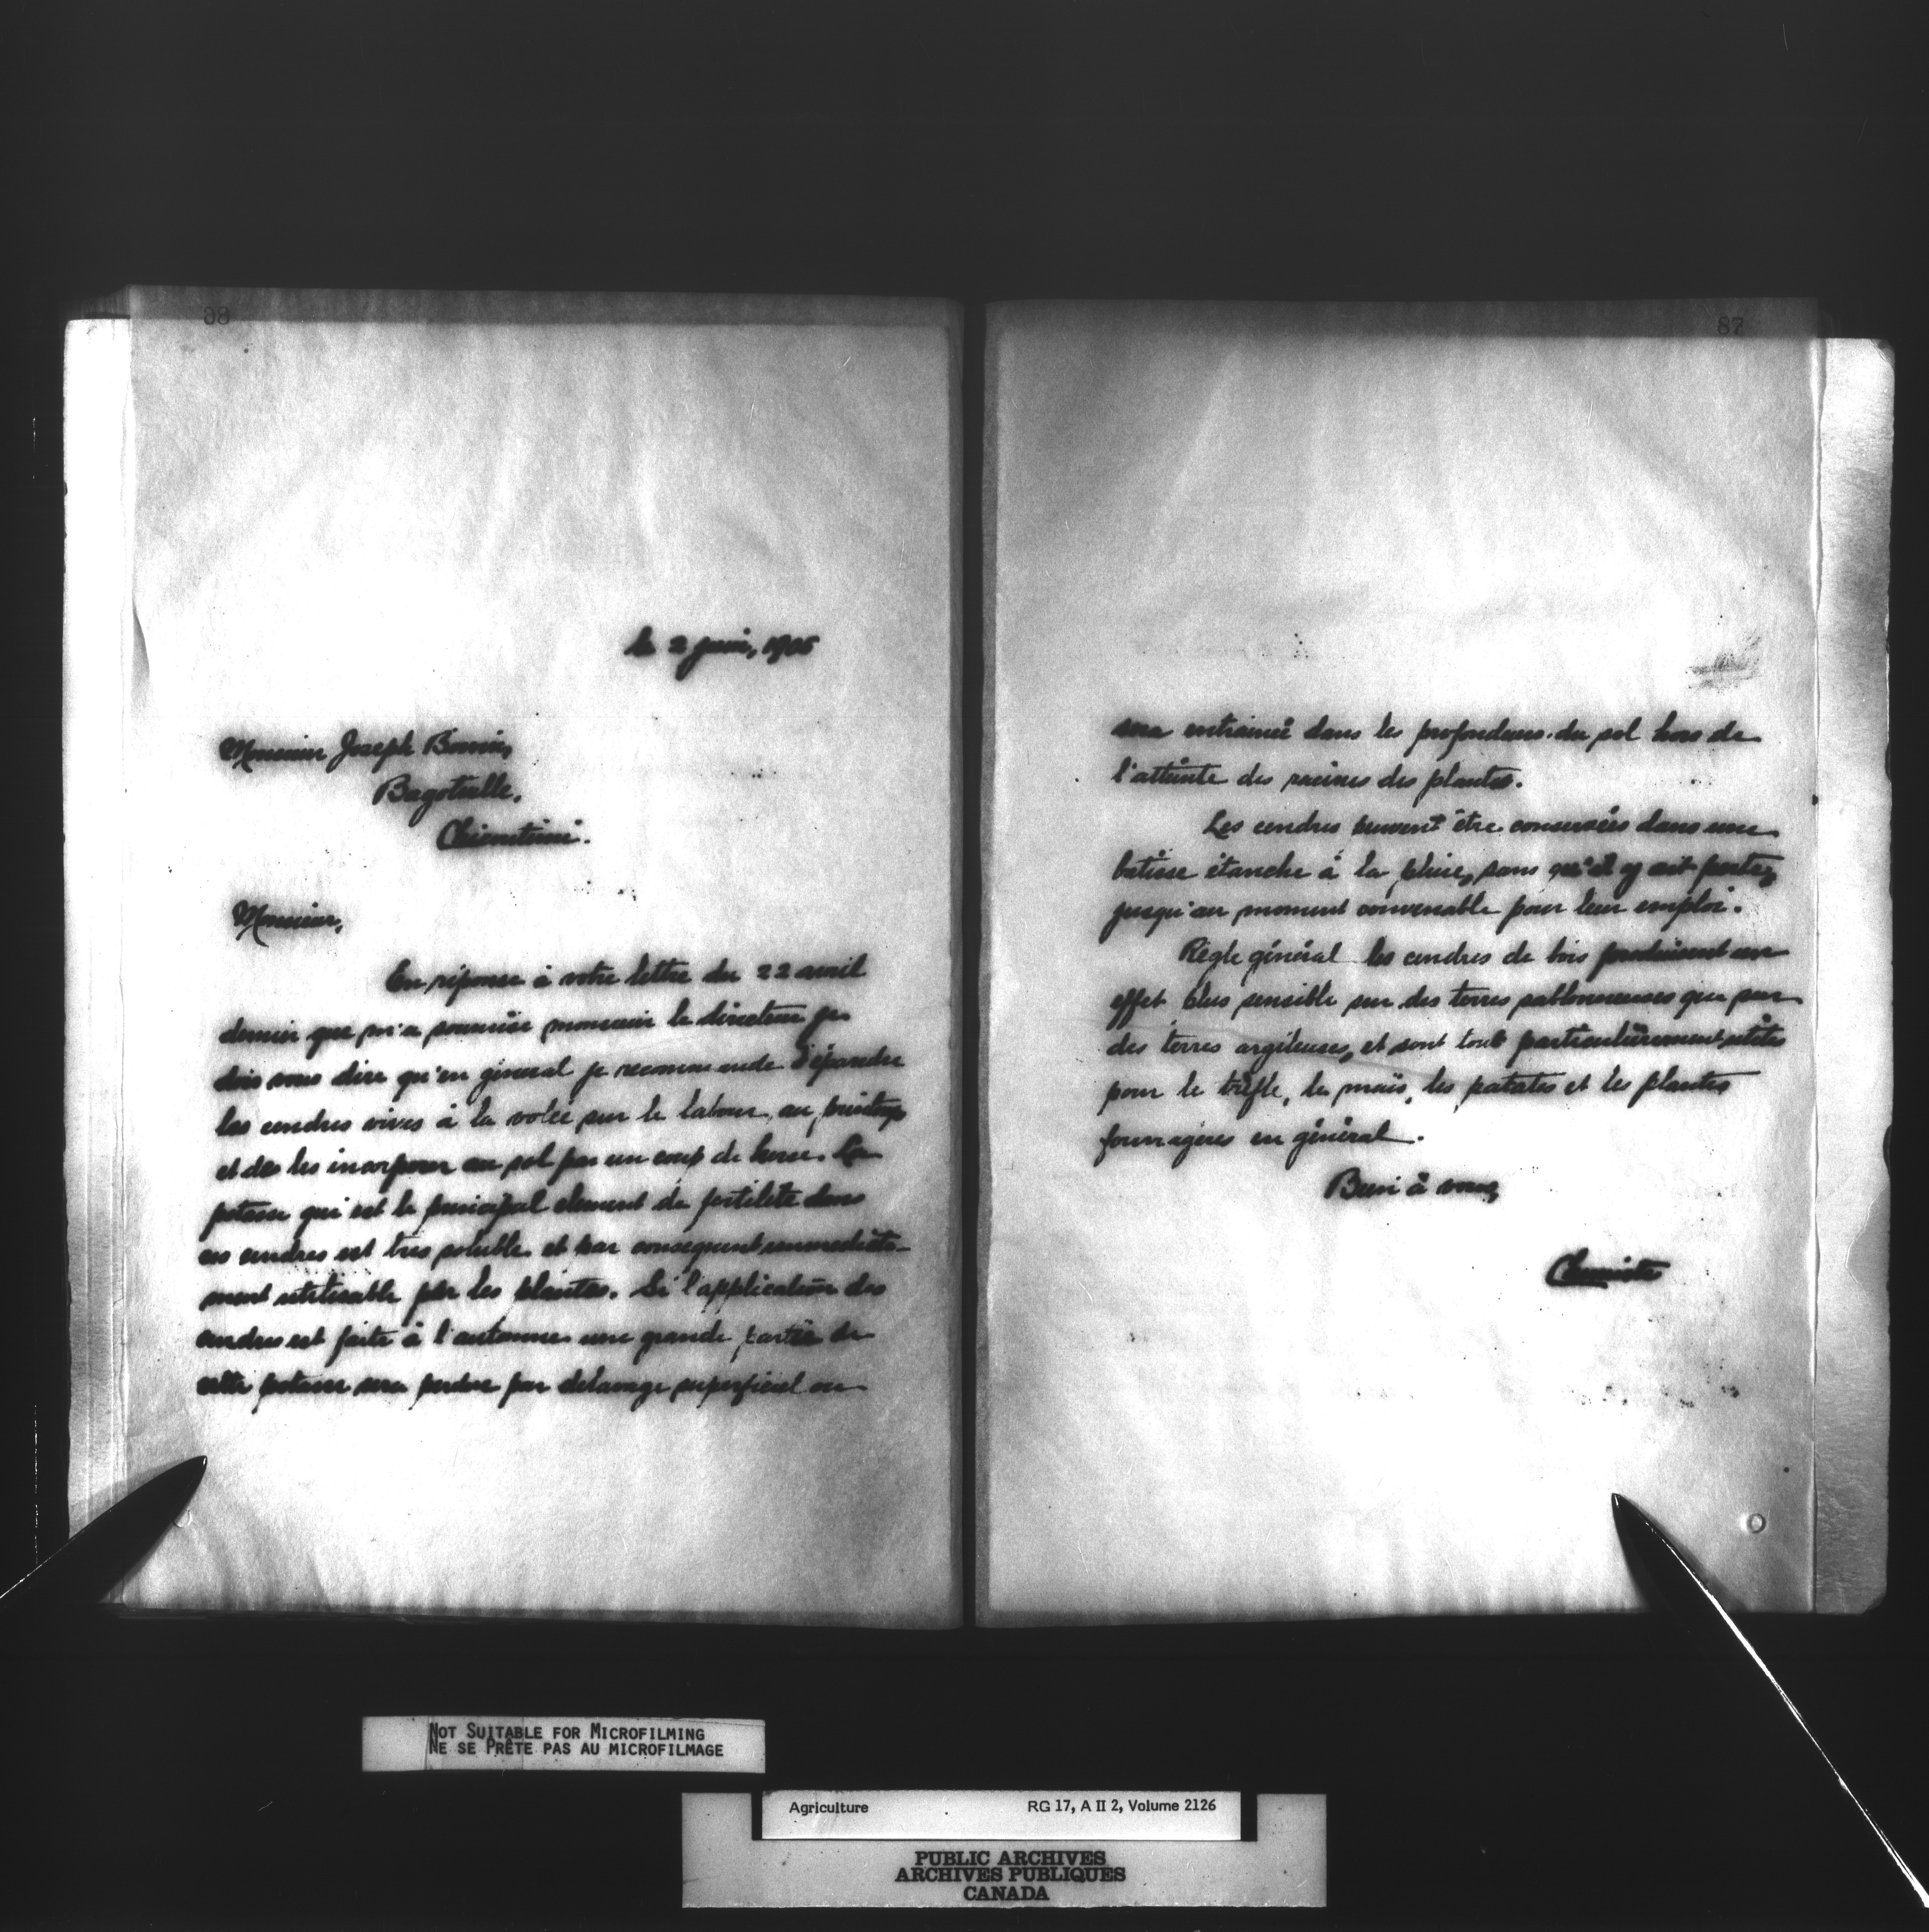 88
le 2 juin, 1905
Monsieur Joseph
Bagotville.
Chicoutimi.
Monsieur,
En réponse à votre lettre du 22 avril
dernier que m'a soumise monsieur le directeur je
dois vous dire qu'en general je recommande d'épandre
les cendres vives à la volée sur le labour, au printemps
et de les incorporer au sol par un coup de herse. La
potasse qui est le principal element de fertilité dans
ces cendres est très soluble et par consequent immediate-
ment utilisable par les plantes. Si l'application des
cendres est faite à l'automne une grande partie de
cette potasse sera perdue par delavage superficiel ou
87
sera entrainée dans les profondeurs du sol hors de
l'atteinte des racines des plantes.
Les cendres peuvent être conservées dans une
batisse étanche à la pluie, sans qu'il y ait perte,
jusqu'au moment convenable pour leur emploi.
Règle général les cendres de bois produisent un
effet plus sensible sur des terres sablonneuses que sur
des terres argileuses, et sont tout particulièrement utiles
pour le trèfle, le maïs, les patates et les plantes
fourragères en général.
Bien à vous,
Chimiste
NOT SUITABLE FOR MICROFILMING
NE SE PRÊTE PAS AU MICROFILMAGE
Agriculture RG 17, A II 2, Volume 2126
PUBLIC ARCHIVES
ARCHIVES PUBLIQUES
CANADA